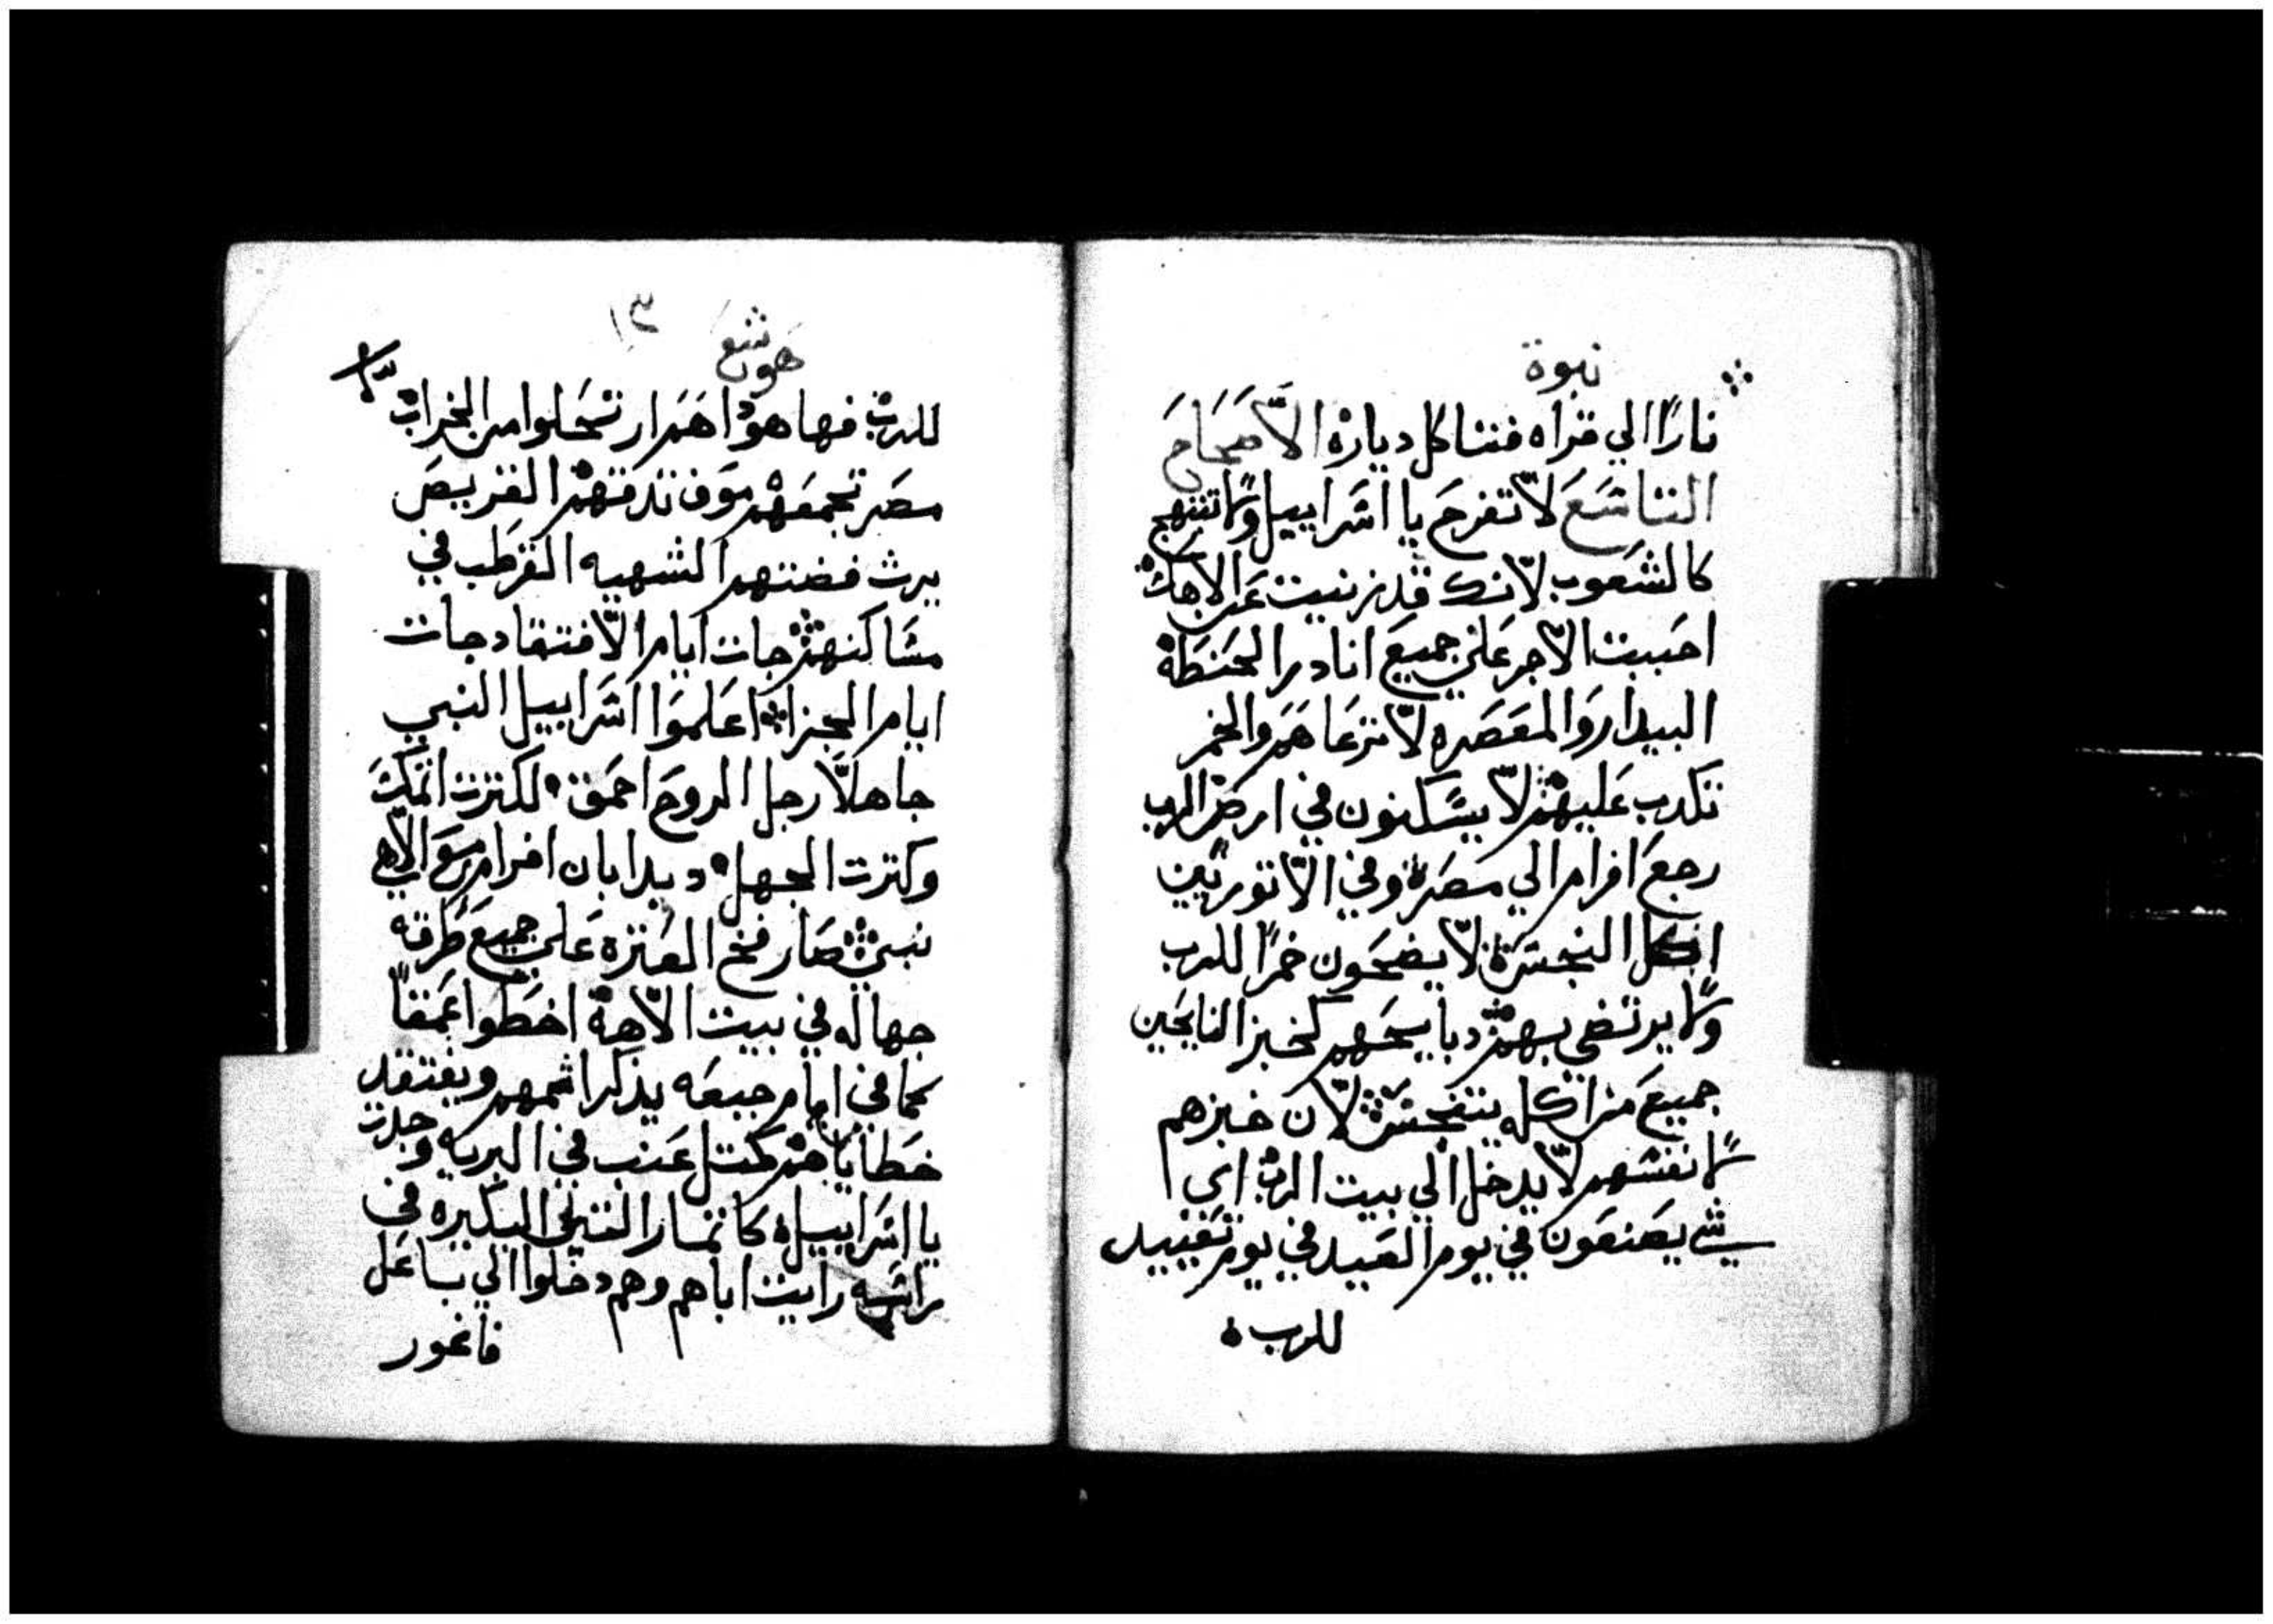 نبوة
نارًا الي قراه فتتاكل دياره الاصحاح
التاسع لا تفرح يا اسراييل ولا تبتهج
كالشعوب لانك قد زنيت عن الاهك
احببت الاجر علي جميع انادر الحنطة
البيدار والمعصره لا ترعاهم والخمر
تكدب عليهم لا يسكنون في ارض الرب
رجع افرام الي مصر وفي الاتوريين
اكل النجسة لا يضحون خمرًا للرب
ولا يرتضي بهم دبايحهم كخبز النايحين
جميع من اكله يتنجس لان خبزهم
لانفسهم لا يدخل الي بيت الرب اي
شي يصنعون في يوم العيد في يوم تعييد
للرب
هوشع ١٣
للرب فها هوذا هم ارتحلوا من الخراب
مصر تجمعهم موف تدفنهم القريص
يرث فضتهم الشهيه القرطب في
مساكنهم جات ايام الافتقاد جات
ايام الجزا اعلموا اسراييل النبي
جاهلًا رجل الروح احمق لكترت اتمك
وكترت الجهل ديدابان افرام مع الاهي
نبي صار فخ العتره علي جميع طرقه
جهاله في بيت الاهه اخطوا عمقًا
كما في ايام جبعه يذكر اثمهم ويفتقد
خطاياهم كمتل عنب في البريه وجدت
يا اسراييل كاتمار التين البكيره في
راسه رايت اباهم وهم دخلوا الي باعل
فاغور